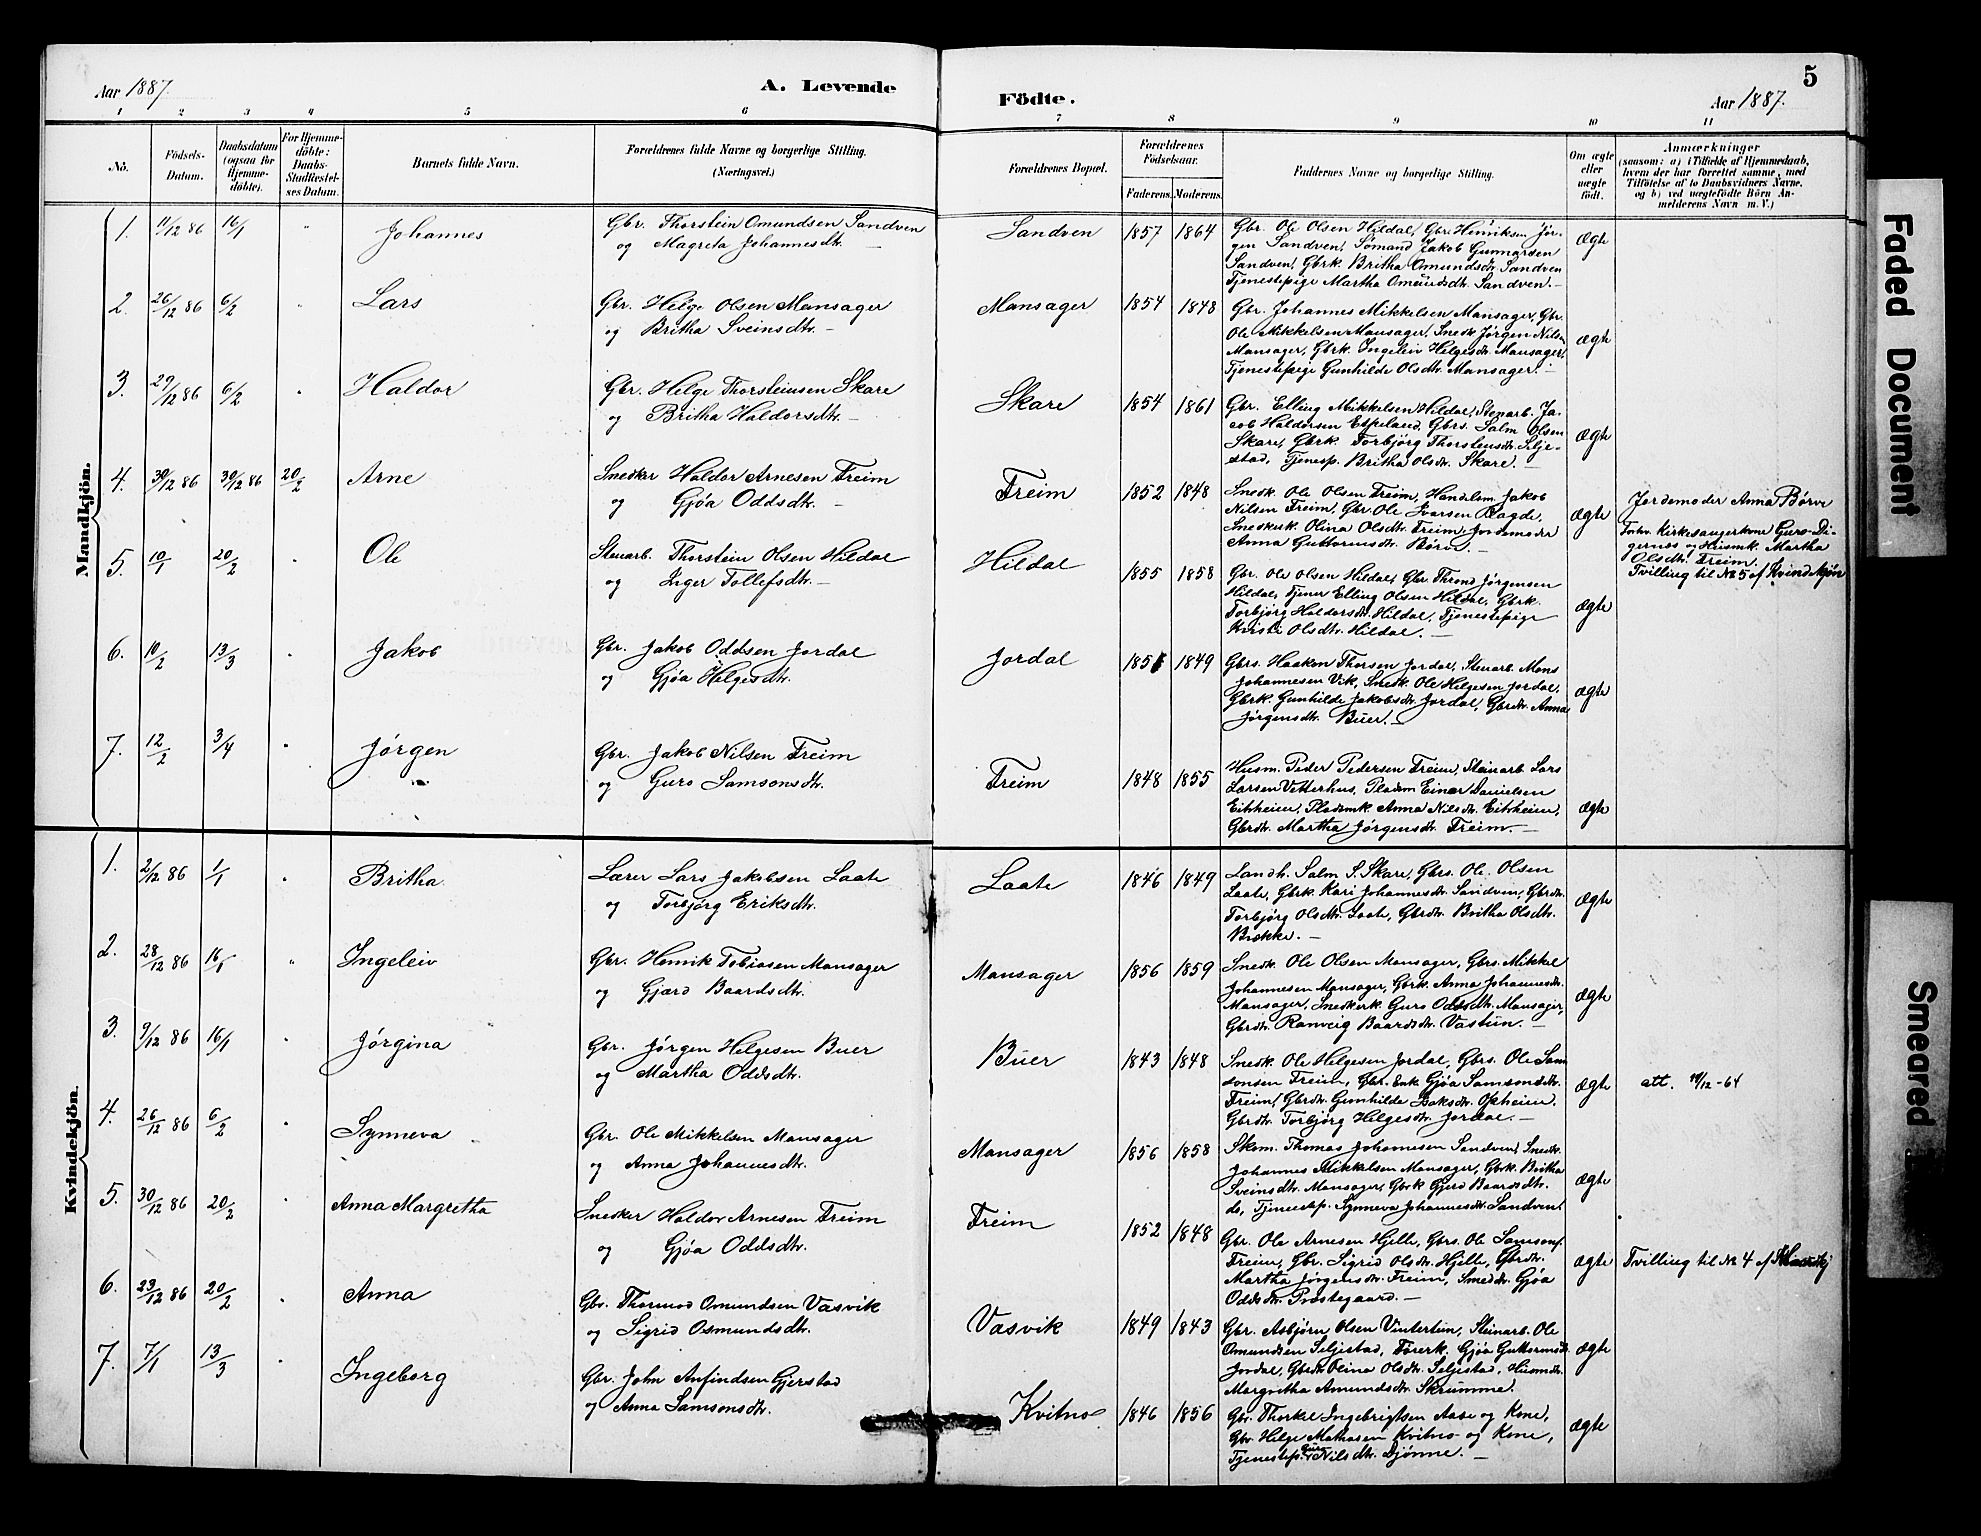 Aar 1887.
A. Levende
Födte.
Aar 1887.
5
1 2 3 4 5 6 7 8 9 10 11
No.
Födsels-
Datum.
Daabsdatum
(ogsaa for
Hjemme-
döbte).
For Hjemme-
döbte:
Daabs-
Stadfæstel-
ses Datum.
Barnets fulde Navn.
Forældrenes fulde Navne og borgerlige Stilling.
(Næringsvei.)
Forældrenes Bopæl.
Forældrenes
Födselsaar.
Faderens. Moderens.
Faddernes Navne og borgerlige Stilling.
Om ægte
eller
uægte
født.
Anmærkninger
(saasom: a) i Tilfælde af Hjemmedaab,
hvem der har forrettet samme, med
Tilföielse af to Daabsvidners Navne,
og b) ved uægtefödte Börn An-
melderens Navn m. V.)
Mandkjön.
1. 11/12 86 16/1 " Johannes
Gbr. Thorstein Omundsen Sandven
og Magreta Johannesdtr. —
Sandven 1857 1864
Gbr. Ole Olsen Hildal, Gbr. Henriksen Jør-
gen Sandven, Sömand Jakob Gunnarsen
Sandven, Gbrk. Britha Omundsdtr. Sandven
Tjenestepige Martha Omundsdtr. Sandven. —
Ægte
2. 26/12 86 6/2 " Lars
Gbr. Helge Olsen Mansager
og Britha Sveinsdtr. —
Mansager 1854 1848
Gbr. Johannes Mikkelsen Mansager, Gbr.
Ole Mikkelsen Mansager, Snedk. Jørgen Nilsen
Mansager, Gbrk. Ingeleiv Helgesdtr. Mansager,
Tjenestepige Gunhilde Olsdtr. Mansager. —
Ægte
3. 29/12 86 6/2 " Haldor
Gbr. Helge Thorsteinsen Skare
og Britha Haldorsdtr. —
Skare 1854 1861
Gbr. Elling Mikkelsen Hildal, Stenarb. Ja-
cob Haldorsen Espeland, Gbrs. Salm Olsen
Skare, Gbrk. Torbjørg Thorsteinsdtr. Selje-
stad, Tjenesp. Britha Olsdtr. Skare. —
Ægte
4. 30/12 86 30/12 86 20/2 Arne
Snedker Haldor Arnesen Freim
og Gjøa Oddsdtr. —
Freim 1852 1848
Snedk. Ole Olsen Freim, Handelsm. Jakob
Nilsen Freim, Gbr. Ole Ivarsen Ragde,
Snedkerk. Olina Olsdtr. Freim, Jordemoder
Anna Guttormsdtr. Børve. —
Ægte
Jordemoder Anna Børve
Forhv. Kirkesangerkone Guro Di-
gernes og Husmk. Martha
Olsdtr. Freim.
Tvilling til No 5 af Kvindekjøn
5. 10/1 20/2 " Ole
Stenarb. Thorstein Olsen Hildal
og Inger Tollefsdtr. —
Hildal 1855 1858
Gbr. Ole Olsen Hildal, Gbr. Thrond Jørgensen
Hildal, Tjener Elling Olsen Hildal, Gbrk.
Torbjørg Haldorsdtr. Hildal, Tjenestepige
Kristi Olsdtr. Hildal. —
Ægte
6. 10/2 13/3 " Jakob
Gbr. Jakob Oddsen Jordal
og Gjøa Helgesdtr.
Jordal 1851 1849
Gbrs. Haakon Thorsen Jordal, Stenarb. Mons
Johannesen Vik, Snedk. Ole Helgesen Jordal,
Gbrk. Gunhilde Jakobsdtr. Jordal, Gbrdtr. Anna
Jørgensdtr. Buer. —
Ægte
7. 12/2 3/4 " Jørgen
Gbr. Jakob Nilsen Freim
og Guro Samsonsdtr.
Freim 1848 1855
Husm. Peder Pedersen Freim, Steinarb. Lars
Larsen Vetterhus, Pladsm Einar Danielsen
Eitrheim, Pladsmk. Anna Nilsdtr. Eitrheim,
Gbrdtr. Martha Jørgensdtr. Freim. —
Ægte
Kvindekjön.
1. 2/12 86 1/1 " Britha
Lærer Lars Jakobsen Laate
og Torbjørg Eriksdtr.
Laate 1846 1849
Landh. Salm S. Skare, Gbrs. Ole Olsen
Laate, Gbrk. Kari Johannesdtr. Sandven, Gbrdtr.
Torbjørg Olsdtr. Laate, Gbrdtr. Britha Olsdtr.
Brekke. —
Ægte
2. 28/12 86 16/1 " Ingeleiv
Gbr. Henrik Tobiasen Mansager
og Gjærd Baardsdtr.
Mansager 1856 1859
Snedk. Ole Olsen Mansager, Gbrs. Mikkel
Johannesen Mansager, Gbrk. Anna Johannesdtr.
Mansager, Snedkerk. Guro Oddsdtr. Mansager,
Gbrdtr. Ranveig Baardsdtr. Vastun. —
Ægte
3. 9/12 86 16/1 " Jørgina
Gbr. Jørgen Helgesen Buer
og Martha Oddsdtr.
Buer 1843 1848
Snedk. Ole Helgesen Jordal, Gbrs. Ole Sam
sonsen Freim, Gbr. Enk. Gjøa Samsonsdtr.
Freim, Gbrdtr. Gunhilde Isaksdtr. Opheim.
Gbrdtr. Torbjørg Helgesdtr. Jordal. —
Ægte
att. 10/12-64
4. 26/12 86 6/2 " Synneva
Gbr. Ole Mikkelsen Mansager
og Anna Johannesdtr.
Mansager 1856 1858
Skom. Thomas Johannesen Sandven, Snedk.
Johannes Mikkelsen Mansager, Gbrk. Britha
Sveinsdtr. Mansager, Gbrk. Gjerd Baardsdtr.
ds, Tjenestep. Synneva Johannesdtr. Sandven.
Ægte
5. 30/12 86 20/2 " Anna Margretha
Snedker Haldor Arnesen Freim
og Gjøa Oddsdtr.
Freim 1852 1848
Gbr. Ole Arnesen Hjelle, Gbrs. Ole Samsons.
Freim, Gbr. Sigrid Olsdtr. Hjelle, Gbrdtr.
Martha Jørgensdtr. Freim, Smeddtr. Gjøa
Oddsdtr. Prestegaard. —
Ægte
Tvilling til No 4 af
6. 23/12 86 20/2 " Anna
Gbr. Thormod Omundsen Vasvik
og Sigrid Osmundsdtr.
Vasvik 1849 1843
Gbr. Asbjørn Olsen Vintertun, Steinarb. Ole
Omundsen Seljestad, Førerk. Gjøa Guttormsdtr.
Jordal, Gbrdtr. Olina Olsdtr. Seljestad, Husmdtr.
Margretha Amundsdtr. Skrumme.
Ægte
7. 7/1 13/3 " Ingeborg
Gbr. John Anfindsen Gjerstad
og Anna Samsonsdtr.
Kvitno 1846 1856
Gbr. Thorkel Ingebrigtsen Aase og Kone,
Gbr. Helge Mathiasen Kvitno og Kone,
Tjenestep. Guri Nilsdtr. Djønne. —
Ægte
Faded Document
Smeared